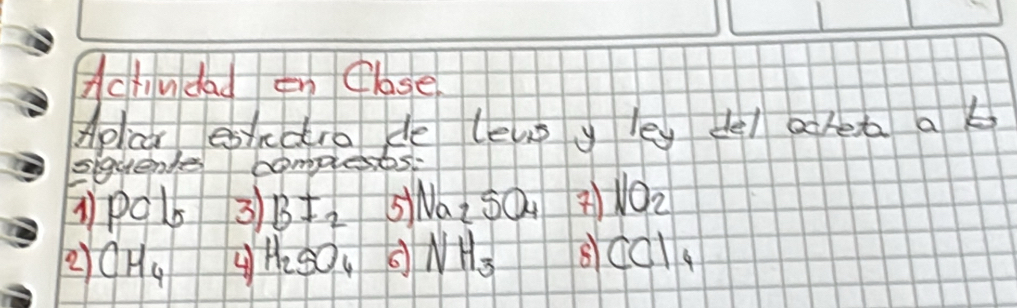 Actividad en Clase.
Aplicar estructura de lewis y ley del octeto a los
siguientes compuestos:
1) PCl5 3) BI2 5) Na2SO4 7) NO2
2) CH4 4) H2SO4 6) NH3 8) CCl4